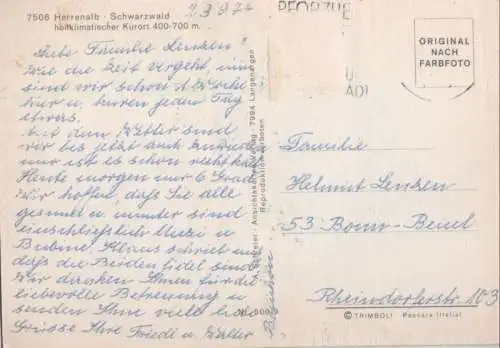 23.9.74
7506 Herrenalb - Schwarzwald
heilklimatischer Kurort 400-700 m.
Liebe Familie Lenzen!
Wie die Zeit vergeht, nun
sind wir schon 1 Woche
hier u. kuren jeden Tag
etwas.
Mit dem Wetter sind
wir bis jetzt auch zufrieden
nur ist es schon recht kalt
Heute morgen nur 6 Grad
Wir hoffen, daß Sie alle
gesund u. munter sind
einschließlich Mutzi u.
Bubine. Klaus schrieb uns
daß die Beiden fidel sind
Wir danken Ihnen für die
liebevolle Betreuung u.
senden Ihne viele liebe
Grüsse Ihre Friedl u. Walter
Ansichtskartenverlag - 7994 Langenargen
Reproduktion verboten
ORIGINAL
NACH
FARBFOTO
Familie
Helmut Lenzen
53 Bonn-Beuel
Rheindorferstr. 103
© TRIMBOLI Pescara (Italia)